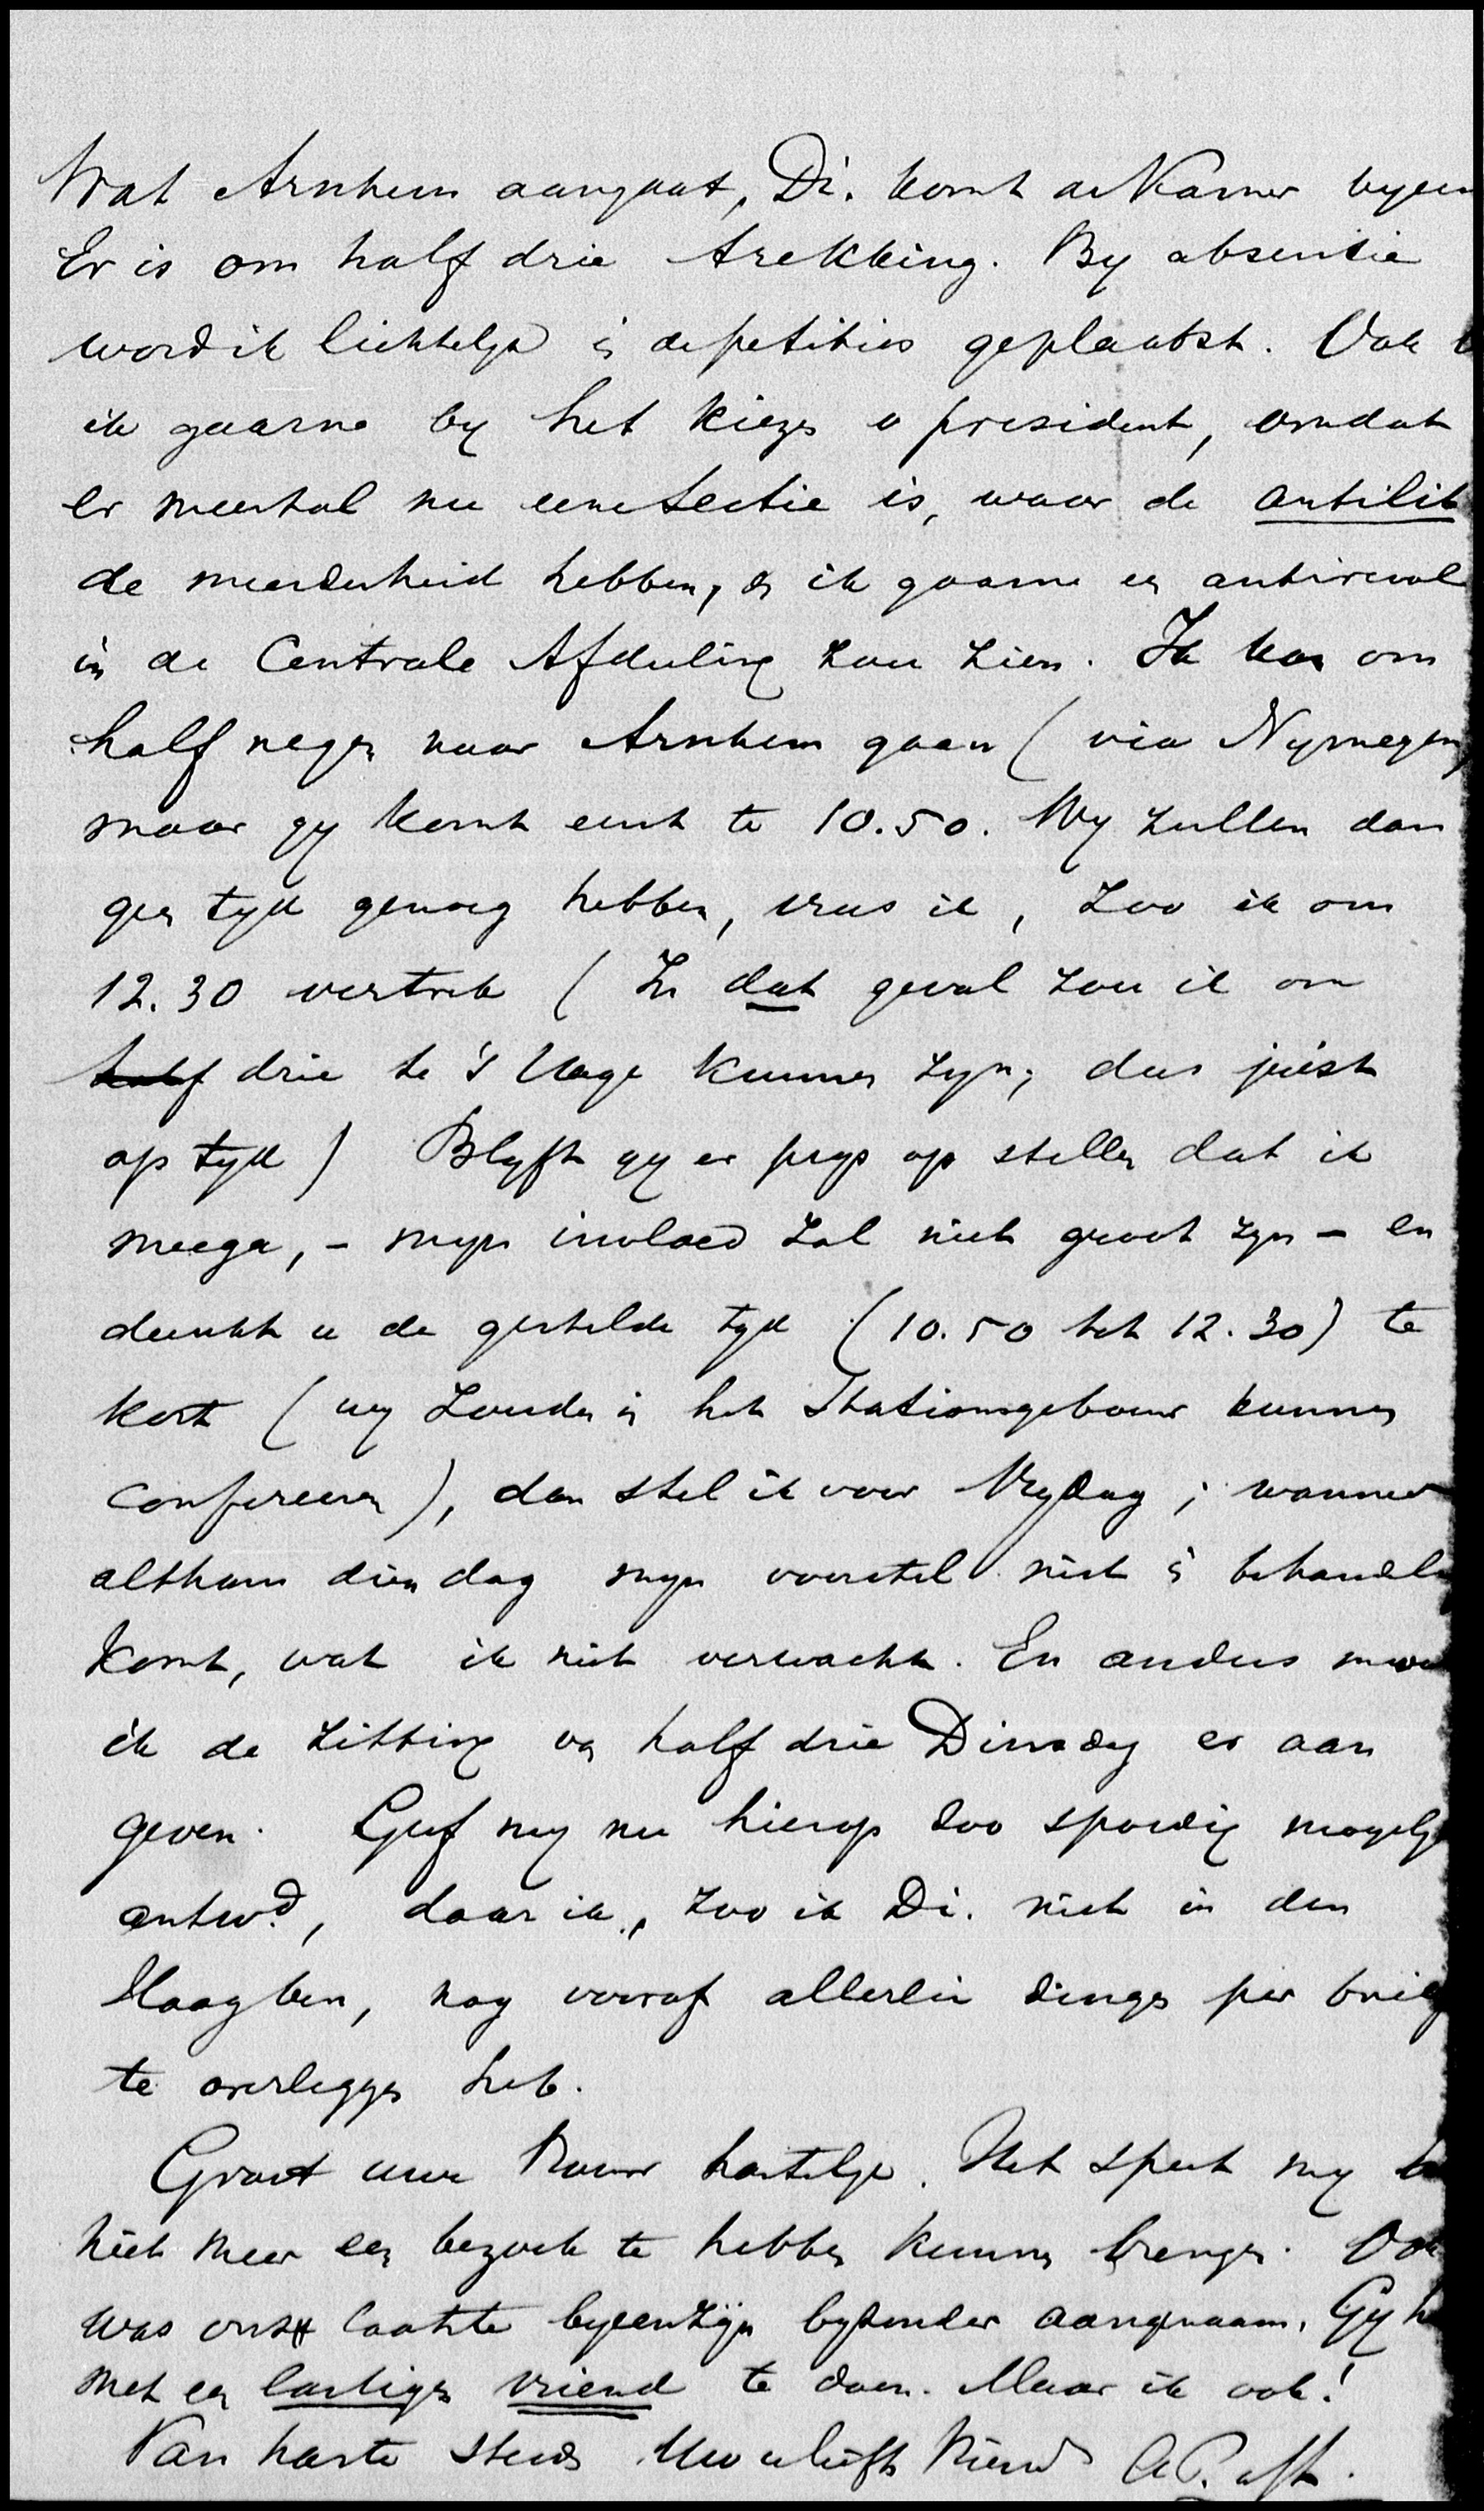 Wat Arnhem aangaat, Di. komt de Kamer byeen
Er is om half drie trekking. By absentie
word ik lichtelyk in de petities geplaatst. Ook b
ik gaarne by het kiezen v president, omdat
er meestal nu eene sectie is, waar de antilib
de meerderheid hebben, en ik gaarne een antirevol
in de Centrale Afdeeling zou zien. Ik kan om
half negen naar Arnhem gaan (via Nymegen)
maar gy komt eerst te 10.50. Wy zullen dan
geen tyd genoeg hebben, vrees ik, zoo ik om
12.30 vertrek (In dat geval zou ik om
half drie te 's Hage kunnen zyn; dus juist
op tyd) Blyft gy er prys op stellen dat ik
meega, – myn invloed zal niet groot zyn – en
dunkt u de gestelde tyd (10.50 tot 12.30) te
kort (wy zouden in het Stationsgebouw kunnen
confereeren), dan stel ik voor Vrydag; wanneer
althans dien dag myn voorstel niet in behandeling
komt, wat ik niet verwacht. En anders moet
ik de zitting van half drie Dinsdag er aan
geven. Geef my nu hierop zoo spoedig mogelyk
antwd, daar ik, zoo ik Di. niet in den
Haag ben, nog vooraf allerlei dingen per brief
te overleggen heb.
Groet uwe Vrouw hartelyk. Het speet my
niet meer een bezoek te hebben kunnen brengen. Ook
was onze laatste byeenzijn byzonder aangenaam. Gy h
met een lastigen vriend te doen. Maar ik ook!
Van harte steeds Uw liefh Vriend